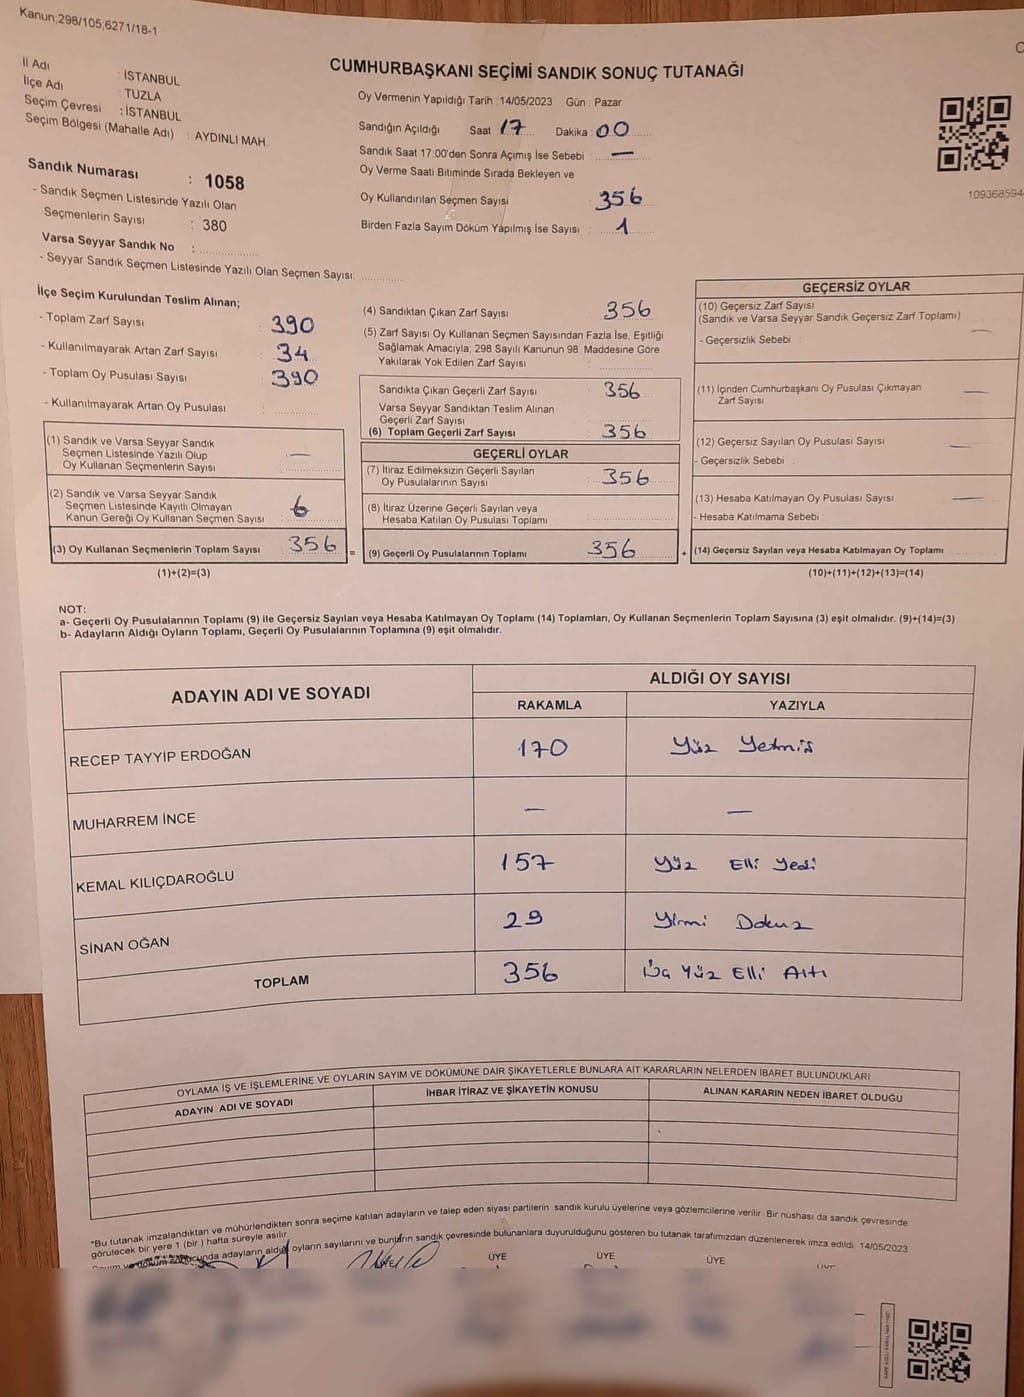 Kanun;298/105,6271/18-1
İl Adı : İSTANBUL
İlçe Adı : TUZLA
Seçim Çevresi : İSTANBUL
Seçim Bölgesi (Mahalle Adı) : AYDINLI MAH.
CUMHURBAŞKANI SEÇİMİ SANDIK SONUÇ TUTANAĞI
Oy Vermenin Yapıldığı Tarih : 14/05/2023 Gün : Pazar
Sandığın Açıldığı Saat 17 Dakika : 00
Sandık Saat 17:00'den Sonra Açımış İse Sebebi : —
Oy Verme Saati Bitiminde Sırada Bekleyen ve
Oy Kullandırılan Seçmen Sayısı : 356
Birden Fazla Sayım Döküm Yapılmış İse Sayısı : 1
109368594
Sandık Numarası : 1058
- Sandık Seçmen Listesinde Yazılı Olan
Seçmenlerin Sayısı : 380
Varsa Seyyar Sandık No :
- Seyyar Sandık Seçmen Listesinde Yazılı Olan Seçmen Sayısı:
İlçe Seçim Kurulundan Teslim Alınan;
- Toplam Zarf Sayısı : 390
- Kullanılmayarak Artan Zarf Sayısı : 34
- Toplam Oy Pusulası Sayısı : 390
- Kullanılmayarak Artan Oy Pusulası :
(1) Sandık ve Varsa Seyyar Sandık
Seçmen Listesinde Yazılı Olup
Oy Kullanan Seçmenlerin Sayısı : —
(2) Sandık ve Varsa Seyyar Sandık
Seçmen Listesinde Kayıtlı Olmayan
Kanun Gereği Oy Kullanan Seçmen Sayısı : 6
(3) Oy Kullanan Seçmenlerin Toplam Sayısı : 356 =
(1)+(2)=(3)
(4) Sandıktan Çıkan Zarf Sayısı : 356
(5) Zarf Sayısı Oy Kullanan Seçmen Sayısından Fazla İse, Eşitliği
Sağlamak Amacıyla; 298 Sayılı Kanunun 98. Maddesine Göre
Yakılarak Yok Edilen Zarf Sayısı :
Sandıkta Çıkan Geçerli Zarf Sayısı : 356
Varsa Seyyar Sandıktan Teslim Alınan
Geçerli Zarf Sayısı :
(6) Toplam Geçerli Zarf Sayısı : 356
GEÇERLİ OYLAR
(7) İtiraz Edilmeksizin Geçerli Sayılan
Oy Pusulalarının Sayısı : 356
(8) İtiraz Üzerine Geçerli Sayılan veya
Hesaba Katılan Oy Pusulası Toplamı :
(9) Geçerli Oy Pusulalarının Toplamı : 356 +
GEÇERSİZ OYLAR
(10) Geçersiz Zarf Sayısı
(Sandık ve Varsa Seyyar Sandık Geçersiz Zarf Toplamı) : —
- Geçersizlik Sebebi :
(11) İçinden Cumhurbaşkanı Oy Pusulası Çıkmayan
Zarf Sayısı : —
(12) Geçersiz Sayılan Oy Pusulası Sayısı : —
- Geçersizlik Sebebi :
(13) Hesaba Katılmayan Oy Pusulası Sayısı : —
- Hesaba Katılmama Sebebi :
(14) Geçersiz Sayılan veya Hesaba Katılmayan Oy Toplamı
(10)+(11)+(12)+(13)=(14)
NOT:
a- Geçerli Oy Pusulalarının Toplamı (9) ile Geçersiz Sayılan veya Hesaba Katılmayan Oy Toplamı (14) Toplamları, Oy Kullanan Seçmenlerin Toplam Sayısına (3) eşit olmalıdır. (9)+(14)=(3)
b- Adayların Aldığı Oyların Toplamı, Geçerli Oy Pusulalarının Toplamına (9) eşit olmalıdır.
ADAYIN ADI VE SOYADI ALDIĞI OY SAYISI
RAKAMLA YAZIYLA
RECEP TAYYİP ERDOĞAN 170 Yüz Yetmiş
MUHARREM İNCE — —
KEMAL KILIÇDAROĞLU 157 Yüz Elli Yedi
SİNAN OĞAN 29 Yirmi Dokuz
TOPLAM 356 Üç Yüz Elli Altı
OYLAMA İŞ VE İŞLEMLERİNE VE OYLARIN SAYIM VE DÖKÜMÜNE DAİR ŞİKAYETLERLE BUNLARA AİT KARARLARIN NELERDEN İBARET BULUNDUKLARI
ADAYIN ADI VE SOYADI İHBAR İTİRAZ VE ŞİKAYETİN KONUSU ALINAN KARARIN NEDEN İBARET OLDUĞU
*Bu tutanak imzalandıktan ve mühürlendikten sonra seçime katılan adayların ve talep eden siyasi partilerin sandık kurulu üyelerine veya gözlemcilerine verilir. Bir nüshası da sandık çevresinde
görülecek bir yere 1 (bir) hafta süreyle asılır.
adayların aldığı oyların sayılarını ve bunların sandık çevresinde bulunanlara duyurulduğunu gösteren bu tutanak tarafımızdan düzenlenerek imza edildi. 14/05/2023
ÜYE ÜYE ÜYE